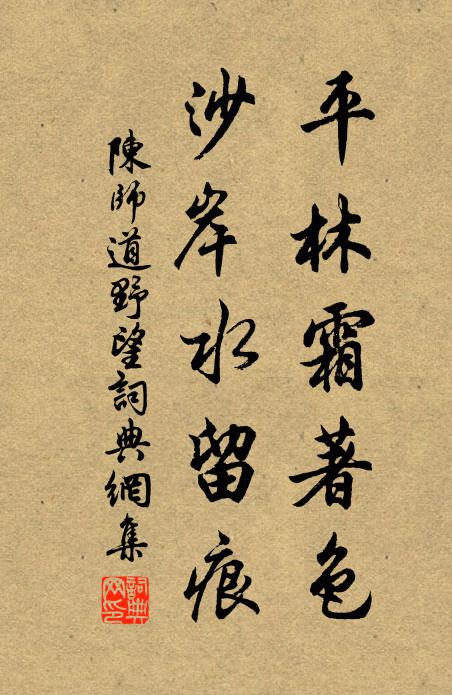 平林霜著色
沙岸水留痕
陳師道野望詞典網集
詞典网印